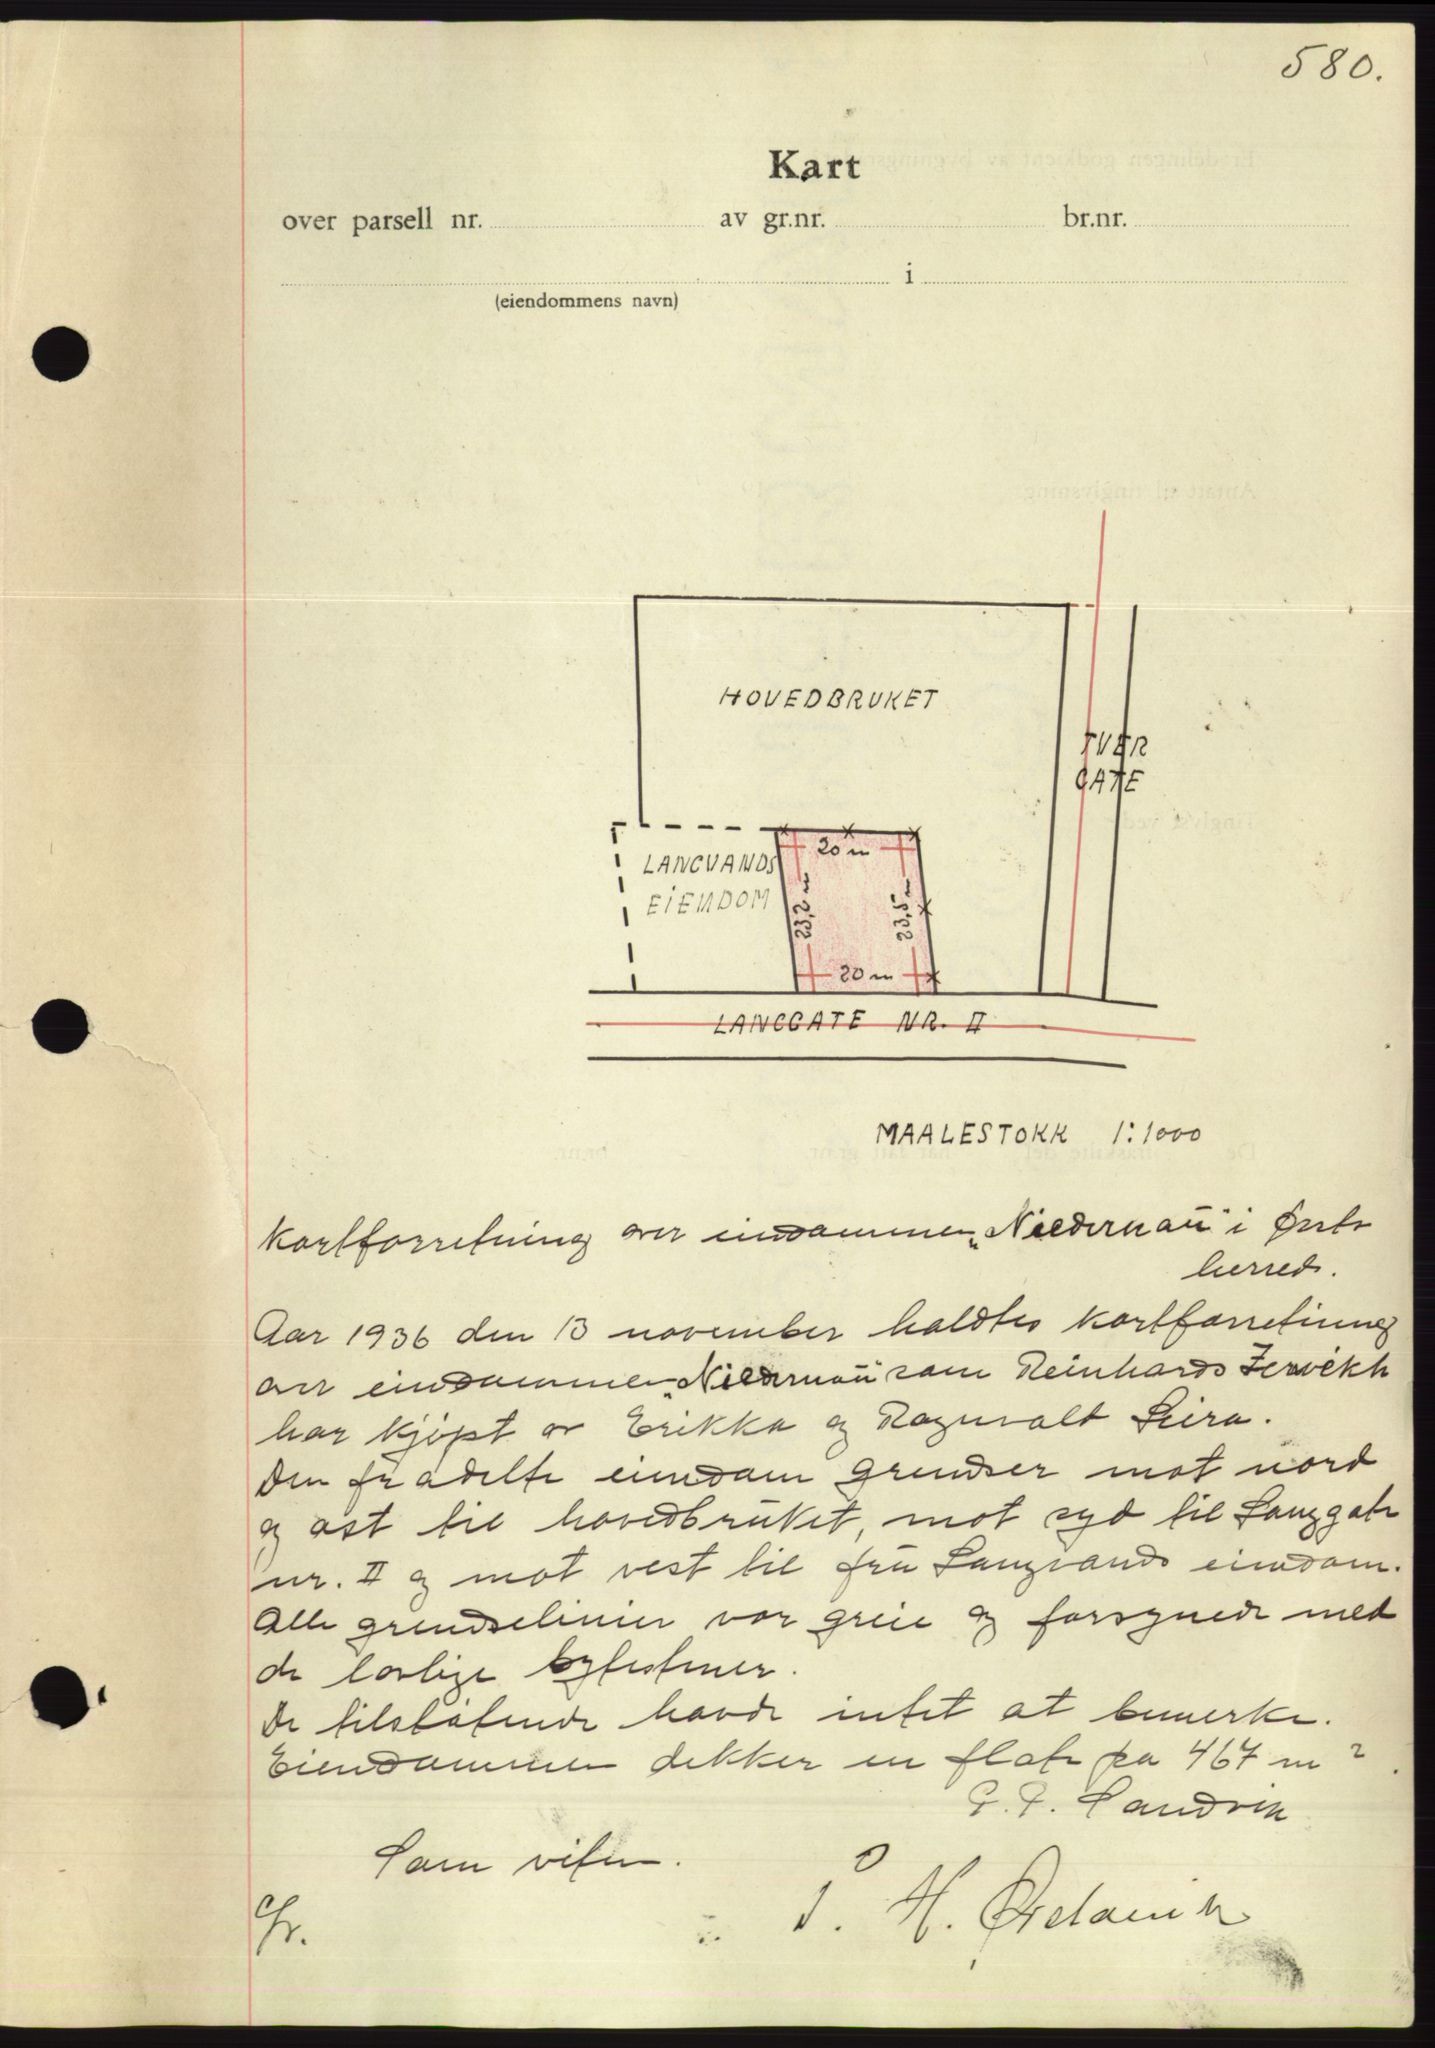 580.
Kart
over parsell nr. av gr.nr. br.nr.
i
(eiendommens navn)
HOVEDBRUKET
TVER
GATE
20 m
LANGVANDS
EIENDOM
23,2 m
23,5 m
20 m
LANGGATE NR. II
MAALESTOKK 1:1000
Kartforretning over eiendommen „Niedernau" i Ørsta
herred.
Aar 1936 den 13 november holdtes kartforretning
over eiendommen „Niedernau" som Reinhards
har kjøpt av Erikka og Ragnvalt Leira.
Den fradelte eiendom grendser mot nord
og øst til hovedbruket, mot syd til Langgate
nr. II og mot vest til fru Langvands eiendom.
Alle grendselinier var greie og forsynede med
de lovlige bytestener.
De tilstøtende havde intet at bemerke.
Eiendommen dekker en flate på 467 m².
Sandvik
Som vitner.
H.